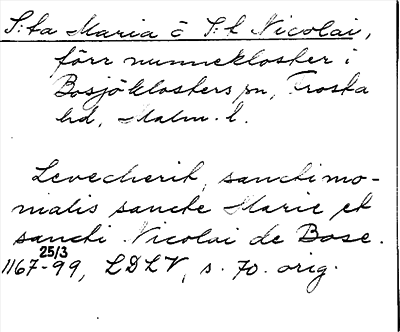 S:ta Maria o S:t Nicolai,
förr nunnekloster i
Bosjöklosters sn, Frosta
hd, Malm. l.
Levecherit, sanctimo-
nialis sancte Marie et
sancti Nicolai de Bose.
25/3
1167-99, LDLV, s. 70. orig.